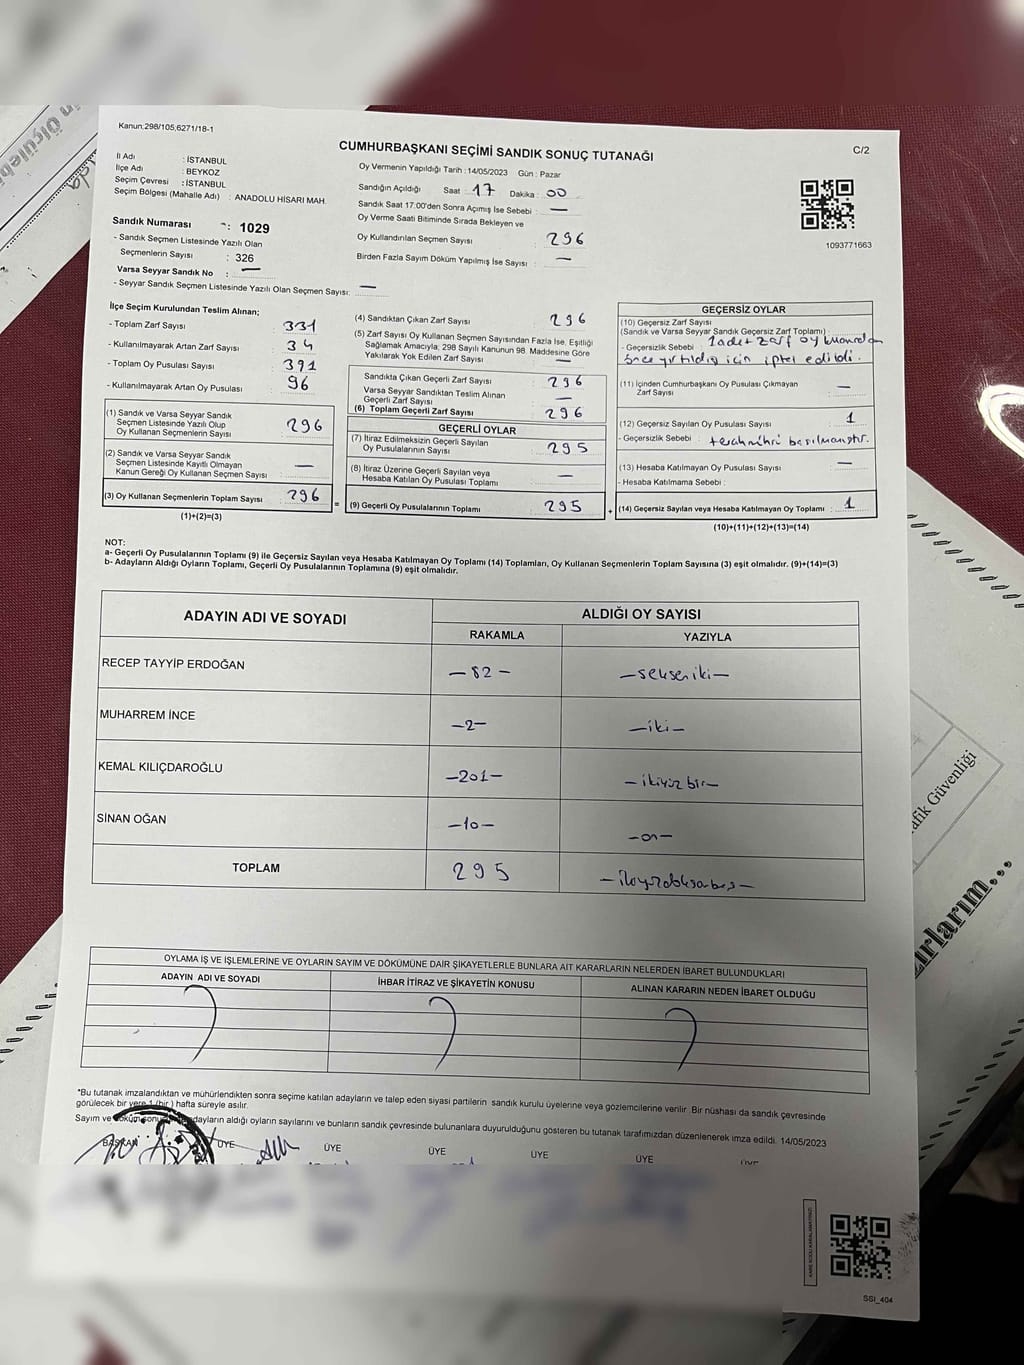 Kanun:298/105,6271/18-1
CUMHURBAŞKANI SEÇİMİ SANDIK SONUÇ TUTANAĞI
C/2
İl Adı : İSTANBUL
İlçe Adı : BEYKOZ
Seçim Çevresi : İSTANBUL
Seçim Bölgesi (Mahalle Adı) : ANADOLU HİSARI MAH.
Sandık Numarası : 1029
- Sandık Seçmen Listesinde Yazılı Olan
Seçmenlerin Sayısı : 326
Varsa Seyyar Sandık No : —
- Seyyar Sandık Seçmen Listesinde Yazılı Olan Seçmen Sayısı: —
Oy Vermenin Yapıldığı Tarih : 14/05/2023 Gün : Pazar
Sandığın Açıldığı Saat 17 Dakika : 00
Sandık Saat 17:00'den Sonra Açımış İse Sebebi : —
Oy Verme Saati Bitiminde Sırada Bekleyen ve
Oy Kullandırılan Seçmen Sayısı : 296
Birden Fazla Sayım Döküm Yapılmış İse Sayısı : —
1093771663
İlçe Seçim Kurulundan Teslim Alınan;
- Toplam Zarf Sayısı : 331
- Kullanılmayarak Artan Zarf Sayısı : 34
- Toplam Oy Pusulası Sayısı : 391
- Kullanılmayarak Artan Oy Pusulası : 96
(1) Sandık ve Varsa Seyyar Sandık
Seçmen Listesinde Yazılı Olup
Oy Kullanan Seçmenlerin Sayısı : 296
(2) Sandık ve Varsa Seyyar Sandık
Seçmen Listesinde Kayıtlı Olmayan
Kanun Gereği Oy Kullanan Seçmen Sayısı : —
(3) Oy Kullanan Seçmenlerin Toplam Sayısı : 296
(1)+(2)=(3)
(4) Sandıktan Çıkan Zarf Sayısı : 296
(5) Zarf Sayısı Oy Kullanan Seçmen Sayısından Fazla İse, Eşitliği
Sağlamak Amacıyla, 298 Sayılı Kanunun 98. Maddesine Göre
Yakılarak Yok Edilen Zarf Sayısı : —
Sandıkta Çıkan Geçerli Zarf Sayısı : 296
Varsa Seyyar Sandıktan Teslim Alınan
Geçerli Zarf Sayısı : —
(6) Toplam Geçerli Zarf Sayısı : 296
GEÇERLİ OYLAR
(7) İtiraz Edilmeksizin Geçerli Sayılan
Oy Pusulalarının Sayısı : 295
(8) İtiraz Üzerine Geçerli Sayılan veya
Hesaba Katılan Oy Pusulası Toplamı : —
= (9) Geçerli Oy Pusulalarının Toplamı : 295
GEÇERSİZ OYLAR
(10) Geçersiz Zarf Sayısı
(Sandık ve Varsa Seyyar Sandık Geçersiz Zarf Toplamı) :
- Geçersizlik Sebebi : 1 adet zarf oy
önce yırtıldığı için iptal edildi.
(11) İçinden Cumhurbaşkanı Oy Pusulası Çıkmayan
Zarf Sayısı : —
(12) Geçersiz Sayılan Oy Pusulası Sayısı : 1
- Geçersizlik Sebebi : basılmamıştır.
(13) Hesaba Katılmayan Oy Pusulası Sayısı : —
- Hesaba Katılmama Sebebi :
+ (14) Geçersiz Sayılan veya Hesaba Katılmayan Oy Toplamı : 1
(10)+(11)+(12)+(13)=(14)
NOT:
a- Geçerli Oy Pusulalarının Toplamı (9) ile Geçersiz Sayılan veya Hesaba Katılmayan Oy Toplamı (14) Toplamları, Oy Kullanan Seçmenlerin Toplam Sayısına (3) eşit olmalıdır. (9)+(14)=(3)
b- Adayların Aldığı Oyların Toplamı, Geçerli Oy Pusulalarının Toplamına (9) eşit olmalıdır.
ADAYIN ADI VE SOYADI ALDIĞI OY SAYISI
RAKAMLA YAZIYLA
RECEP TAYYİP ERDOĞAN —82— —seksen iki—
MUHARREM İNCE —2— —iki—
KEMAL KILIÇDAROĞLU —201— —ikiyüz bir—
SİNAN OĞAN —10— —on—
TOPLAM 295
OYLAMA İŞ VE İŞLEMLERİNE VE OYLARIN SAYIM VE DÖKÜMÜNE DAİR ŞİKAYETLERLE BUNLARA AİT KARARLARIN NELERDEN İBARET BULUNDUKLARI
ADAYIN ADI VE SOYADI İHBAR İTİRAZ VE ŞİKAYETİN KONUSU ALINAN KARARIN NEDEN İBARET OLDUĞU
*Bu tutanak imzalandıktan ve mühürlendikten sonra seçime katılan adayların ve talep eden siyasi partilerin sandık kurulu üyelerine veya gözlemcilerine verilir. Bir nüshası da sandık çevresinde
görülecek bir yere 1 (bir ) hafta süreyle asılır.
Sayım ve döküm adayların aldığı oyların sayılarını ve bunların sandık çevresinde bulunanlara duyurulduğunu gösteren bu tutanak tarafımızdan düzenlenerek imza edildi. 14/05/2023
BAŞKAN ÜYE ÜYE ÜYE ÜYE ÜYE
SSI_404
afik Güvenliği